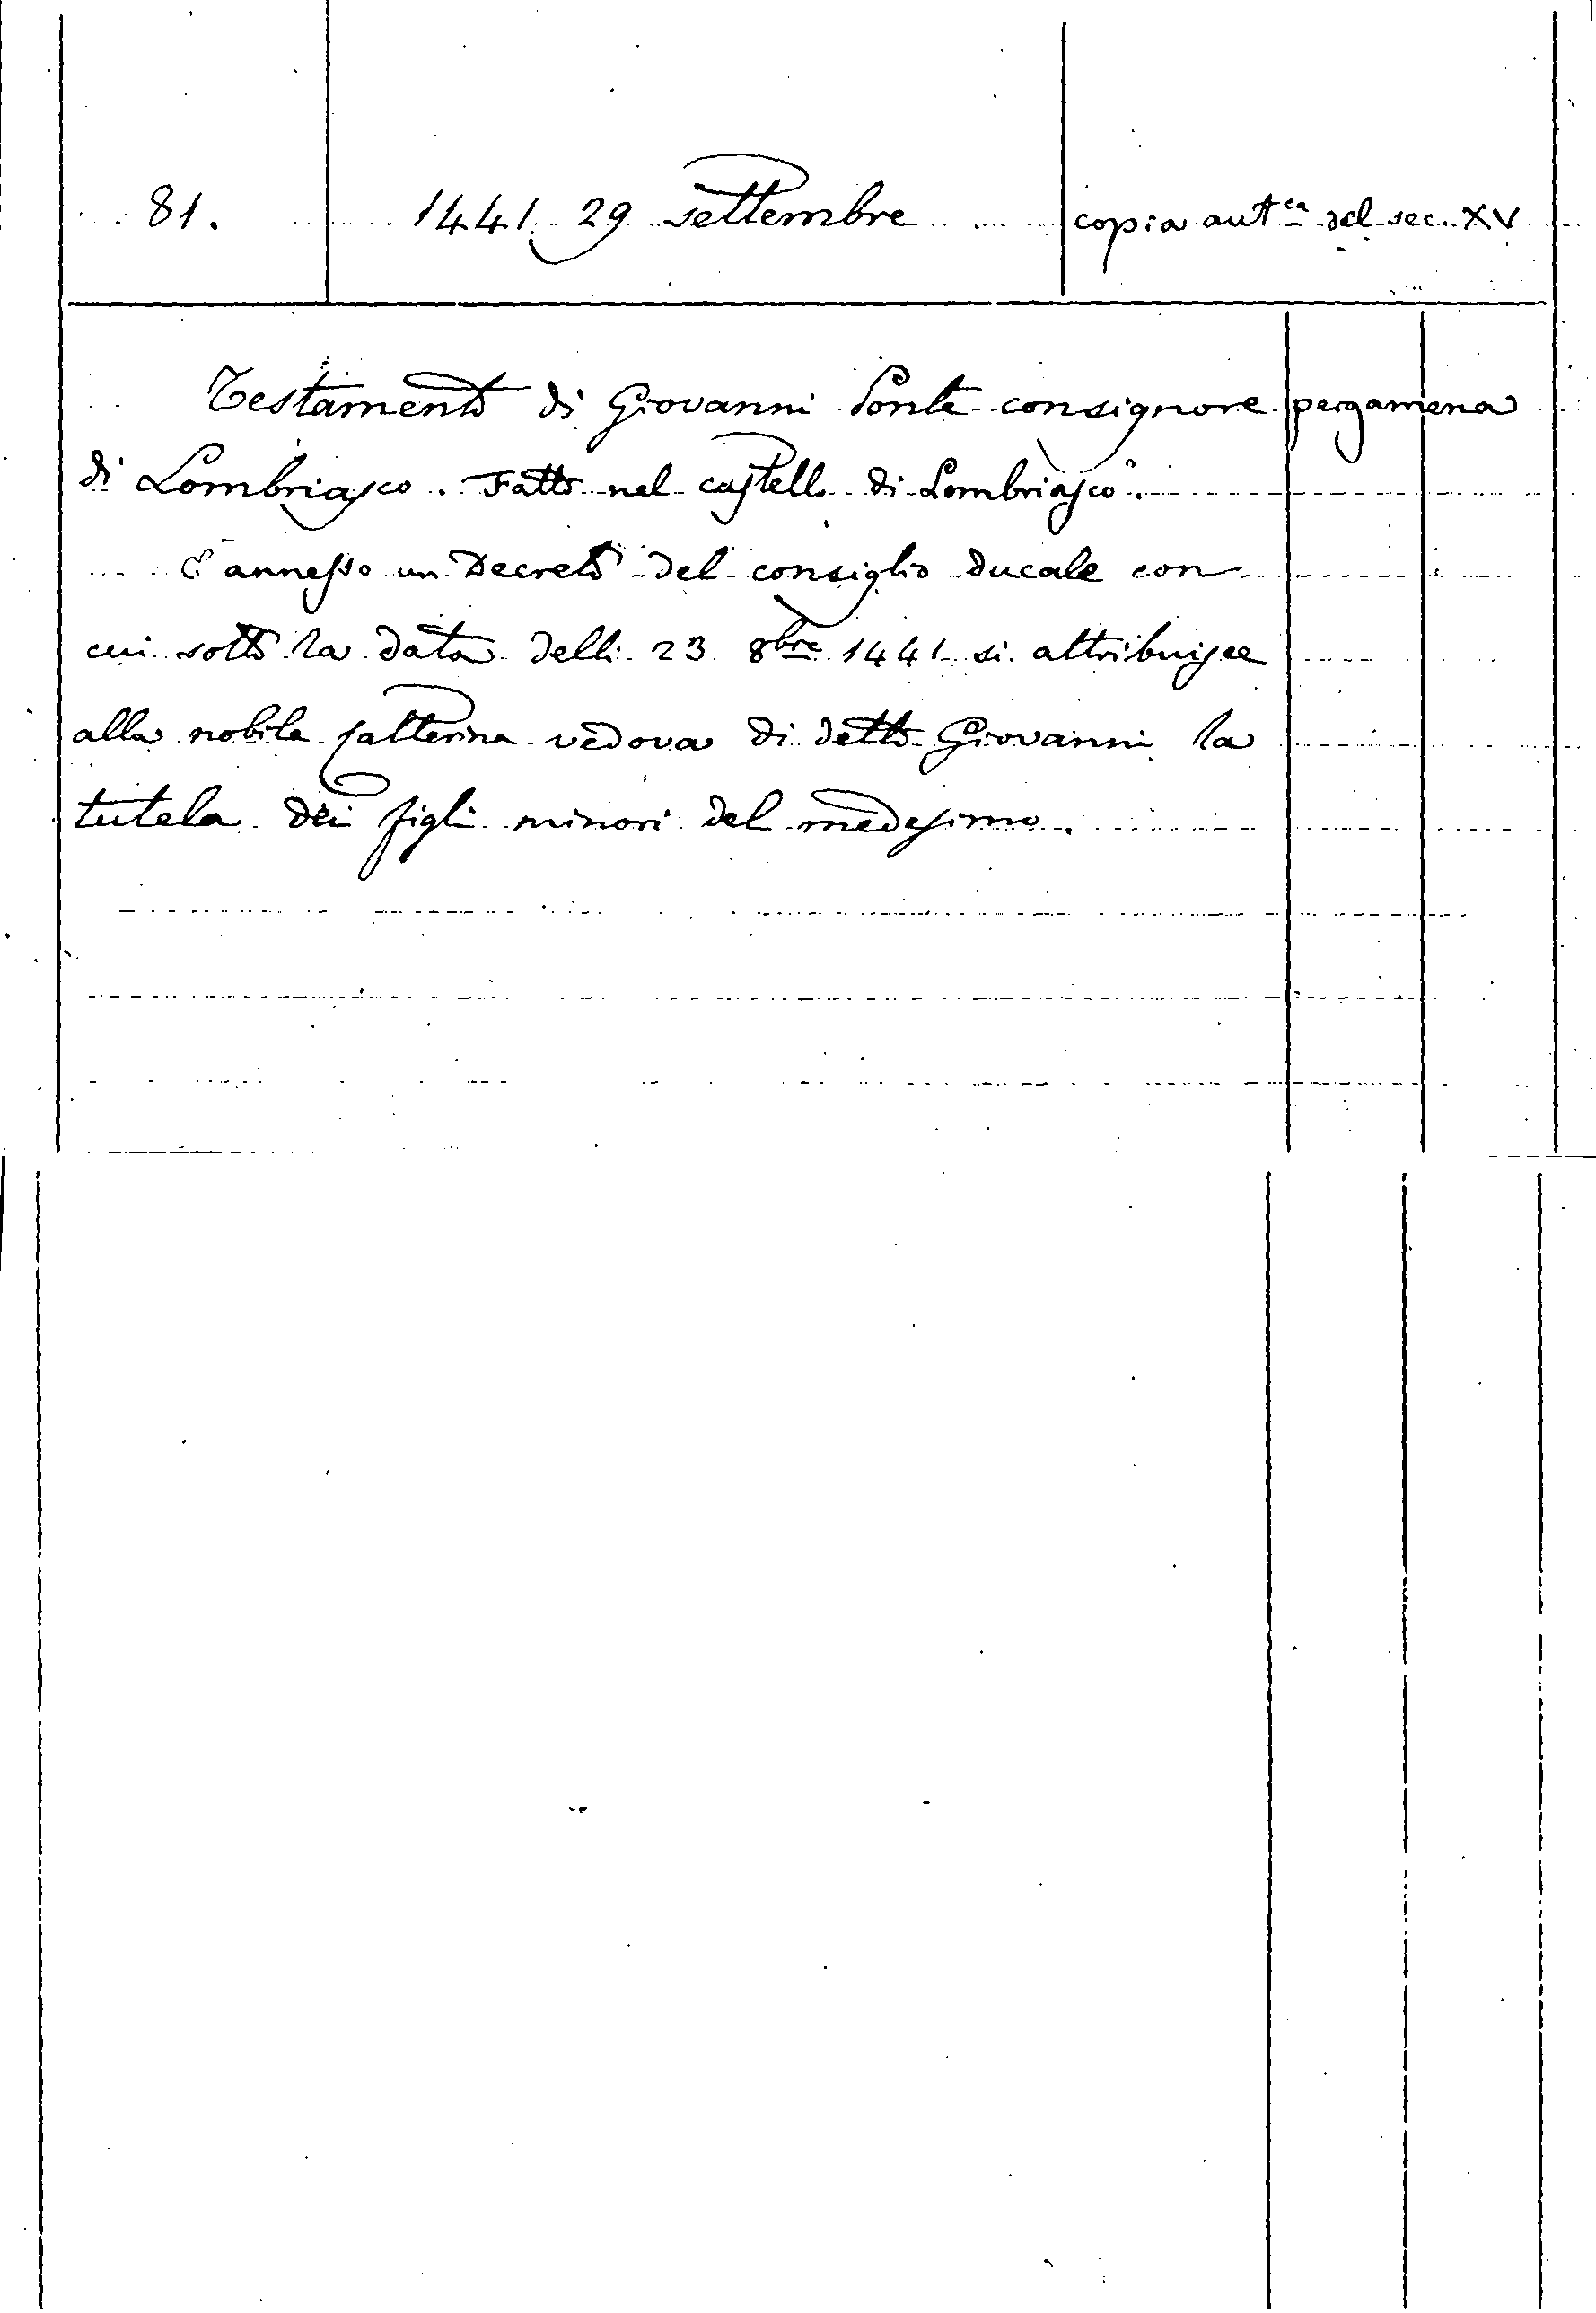 81. 1441. 29 settembre copia aut.ca del sec. XV
Testamento di Giovanni Ponte consignore pergamena
di Lombriasco. Fatto nel castello di Lombriasco.
È annesso un Decreto del consiglio ducale con
cui sotto la data delli 23 8bre 1441 si attribuisce
alla nobile vedova di detto Giovanni la
tutela dei figli minori del medesimo.